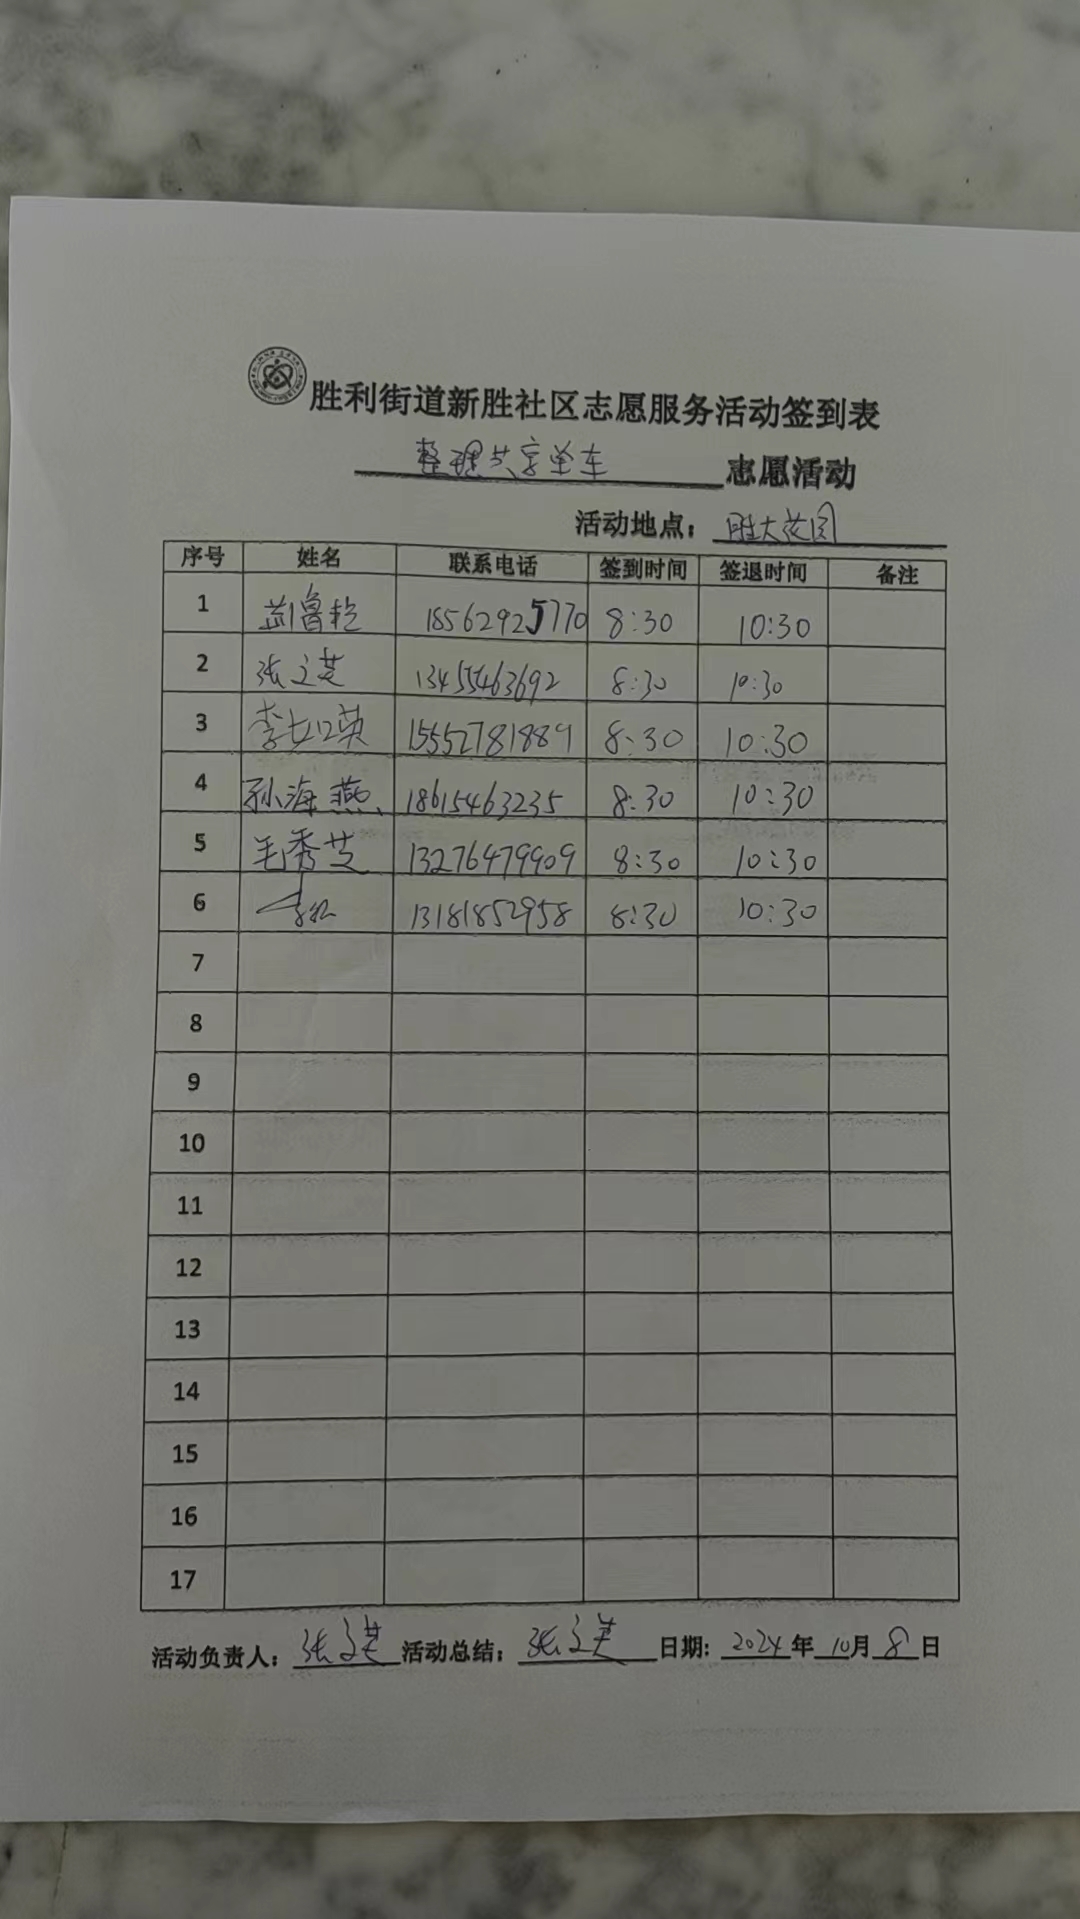 胜利街道新胜社区志愿服务活动签到表
整理共享单车 志愿活动
活动地点： 胜大花园
序号 姓名 联系电话 签到时间 签退时间 备注
1 鲁 18562925770 8:30 10:30
2 张文英 13455463692 8:30 10:30
3 李如英 15552781889 8:30 10:30
4 孙海燕 18615463235 8:30 10:30
5 毛秀芝 13276479909 8:30 10:30
6 13181852958 8:30 10:30
7
8
9
10
11
12
13
14
15
16
17
活动负责人： 张文英 活动总结： 张文英 日期: 2024 年 10 月 8 日